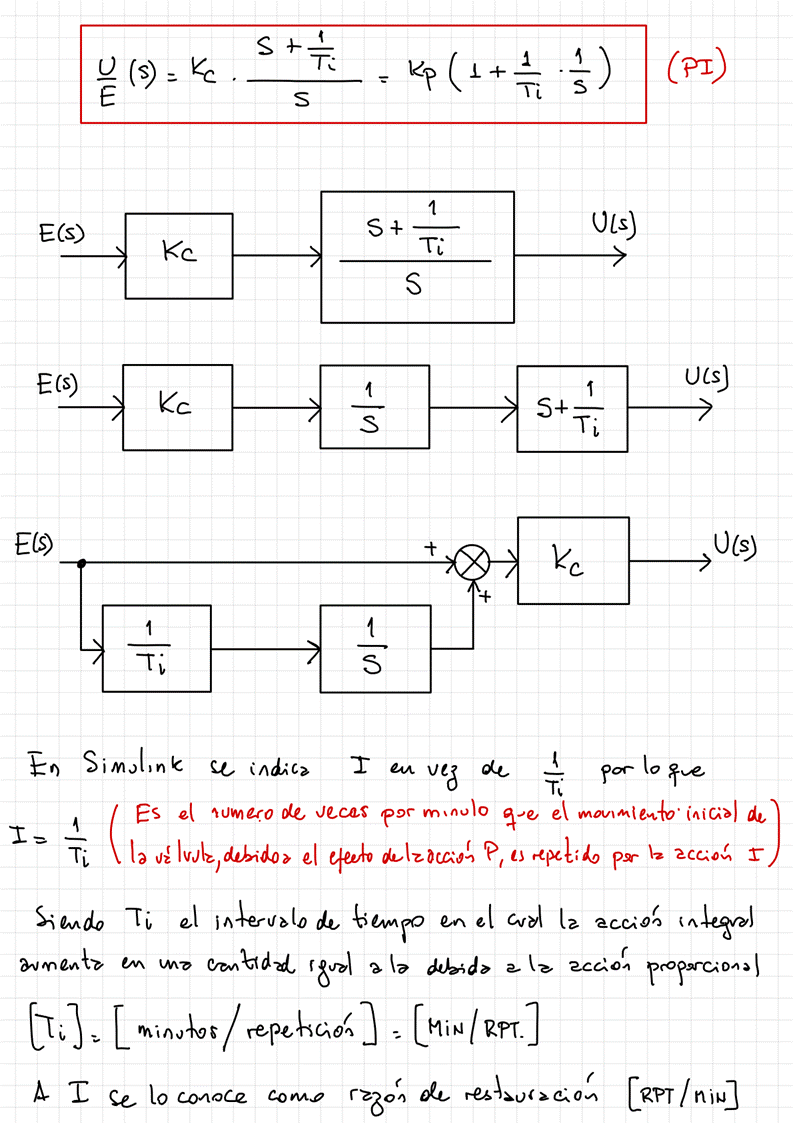 U/E (s) = Kc · (S + 1/Ti)/S = Kp (1 + 1/Ti · 1/S) (PI)
E(s) Kc (S + 1/Ti)/S U(s)
E(s) Kc 1/S S + 1/Ti U(s)
E(s) + Kc U(s)
+
1/Ti 1/S
En Simulink se indica I en vez de 1/Ti por lo que
I = 1/Ti ( Es el numero de veces por minuto que el movimiento inicial de
la válvula, debido a el efecto de la acción P, es repetido por la acción I )
Siendo Ti el intervalo de tiempo en el cual la acción integral
aumenta en una cantidad igual a la debida a la acción proporcional
[Ti] = [minutos/repetición] = [MIN/RPT.]
A I se lo conoce como razón de restauración [RPT/MIN]